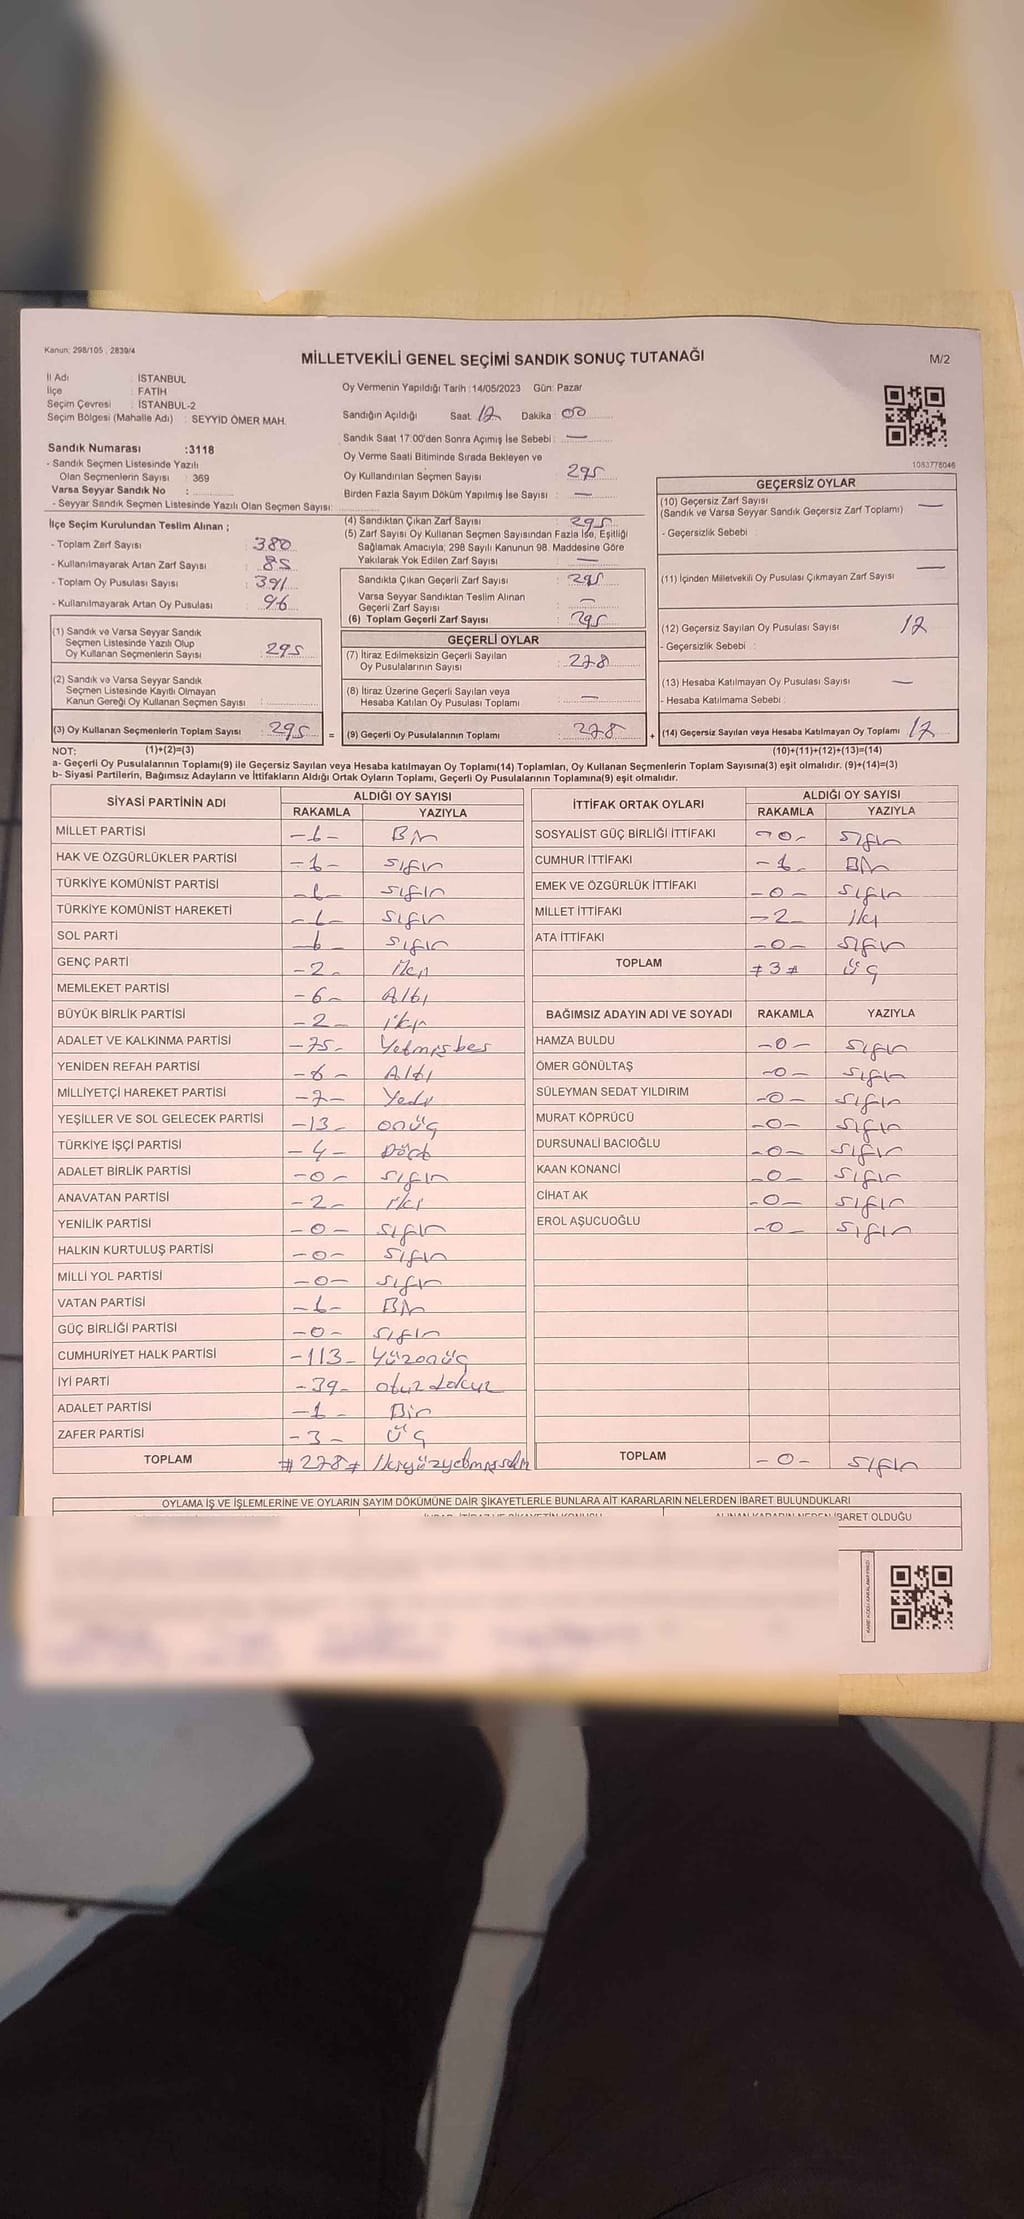 Kanun: 298/105 , 2839/4
MİLLETVEKİLİ GENEL SEÇİMİ SANDIK SONUÇ TUTANAĞI
M/2
İl Adı : İSTANBUL
İlçe : FATİH
Seçim Çevresi : İSTANBUL-2
Seçim Bölgesi (Mahalle Adı) : SEYYİD ÖMER MAH.
Sandık Numarası :3118
- Sandık Seçmen Listesinde Yazılı
Olan Seçmenlerin Sayısı : 369
Varsa Seyyar Sandık No :
- Seyyar Sandık Seçmen Listesinde Yazılı Olan Seçmen Sayısı:
Oy Vermenin Yapıldığı Tarih :14/05/2023 Gün: Pazar
Sandığın Açıldığı Saat 17 Dakika 00
Sandık Saat 17:00'den Sonra Açımış İse Sebebi : —
Oy Verme Saati Bitiminde Sırada Bekleyen ve
Oy Kullandırılan Seçmen Sayısı : 295
Birden Fazla Sayım Döküm Yapılmış İse Sayısı : —
1083778046
İlçe Seçim Kurulundan Teslim Alınan ;
- Toplam Zarf Sayısı : 380
- Kullanılmayarak Artan Zarf Sayısı : 85
- Toplam Oy Pusulası Sayısı : 391
- Kullanılmayarak Artan Oy Pusulası : 96
(1) Sandık ve Varsa Seyyar Sandık
Seçmen Listesinde Yazılı Olup
Oy Kullanan Seçmenlerin Sayısı : 295
(2) Sandık ve Varsa Seyyar Sandık
Seçmen Listesinde Kayıtlı Olmayan
Kanun Gereği Oy Kullanan Seçmen Sayısı :
(3) Oy Kullanan Seçmenlerin Toplam Sayısı : 295
(4) Sandıktan Çıkan Zarf Sayısı : 295
(5) Zarf Sayısı Oy Kullanan Seçmen Sayısından Fazla İse, Eşitliği
Sağlamak Amacıyla; 298 Sayılı Kanunun 98. Maddesine Göre
Yakılarak Yok Edilen Zarf Sayısı : —
Sandıkta Çıkan Geçerli Zarf Sayısı : 295
Varsa Seyyar Sandıktan Teslim Alınan
Geçerli Zarf Sayısı : —
(6) Toplam Geçerli Zarf Sayısı : 295
GEÇERLİ OYLAR
(7) İtiraz Edilmeksizin Geçerli Sayılan
Oy Pusulalarının Sayısı : 278
(8) İtiraz Üzerine Geçerli Sayılan veya
Hesaba Katılan Oy Pusulası Toplamı : —
= (9) Geçerli Oy Pusulalarının Toplamı : 278
GEÇERSİZ OYLAR
(10) Geçersiz Zarf Sayısı —
(Sandık ve Varsa Seyyar Sandık Geçersiz Zarf Toplamı)
- Geçersizlik Sebebi :
(11) İçinden Milletvekili Oy Pusulası Çıkmayan Zarf Sayısı —
(12) Geçersiz Sayılan Oy Pusulası Sayısı 17
- Geçersizlik Sebebi :
(13) Hesaba Katılmayan Oy Pusulası Sayısı —
- Hesaba Katılmama Sebebi :
+ (14) Geçersiz Sayılan veya Hesaba Katılmayan Oy Toplamı 17
NOT: (1)+(2)=(3) (10)+(11)+(12)+(13)=(14)
a- Geçerli Oy Pusulalarının Toplamı(9) ile Geçersiz Sayılan veya Hesaba katılmayan Oy Toplamı(14) Toplamları, Oy Kullanan Seçmenlerin Toplam Sayısına(3) eşit olmalıdır. (9)+(14)=(3)
b- Siyasi Partilerin, Bağımsız Adayların ve İttifakların Aldığı Ortak Oyların Toplamı, Geçerli Oy Pusulalarının Toplamına(9) eşit olmalıdır.
SİYASİ PARTİNİN ADI ALDIĞI OY SAYISI
RAKAMLA YAZIYLA
MİLLET PARTİSİ -1- Bir
HAK VE ÖZGÜRLÜKLER PARTİSİ -1- sıfır
TÜRKİYE KOMÜNİST PARTİSİ sıfır
TÜRKİYE KOMÜNİST HAREKETİ sıfır
SOL PARTİ sıfır
GENÇ PARTİ -2- iki
MEMLEKET PARTİSİ -6- Altı
BÜYÜK BİRLİK PARTİSİ -2- iki
ADALET VE KALKINMA PARTİSİ -75- Yetmişbeş
YENİDEN REFAH PARTİSİ -6- Altı
MİLLİYETÇİ HAREKET PARTİSİ -7- Yedi
YEŞİLLER VE SOL GELECEK PARTİSİ -13- onüç
TÜRKİYE İŞÇİ PARTİSİ -4- Dört
ADALET BİRLİK PARTİSİ -0- sıfır
ANAVATAN PARTİSİ -2- iki
YENİLİK PARTİSİ -0- sıfır
HALKIN KURTULUŞ PARTİSİ -0- sıfır
MİLLİ YOL PARTİSİ -0- sıfır
VATAN PARTİSİ -1- Bir
GÜÇ BİRLİĞİ PARTİSİ -0- sıfır
CUMHURİYET HALK PARTİSİ -113- Yüzonüç
İYİ PARTİ -39- otuzdokuz
ADALET PARTİSİ -1- Bir
ZAFER PARTİSİ -3- üç
TOPLAM #278# İkiyüzyetmişsekiz
İTTİFAK ORTAK OYLARI ALDIĞI OY SAYISI
RAKAMLA YAZIYLA
SOSYALİST GÜÇ BİRLİĞİ İTTİFAKI -0- sıfır
CUMHUR İTTİFAKI -1- Bir
EMEK VE ÖZGÜRLÜK İTTİFAKI -0- sıfır
MİLLET İTTİFAKI -2- iki
ATA İTTİFAKI -0- sıfır
TOPLAM #3# üç
BAĞIMSIZ ADAYIN ADI VE SOYADI RAKAMLA YAZIYLA
HAMZA BULDU -0- sıfır
ÖMER GÖNÜLTAŞ -0- sıfır
SÜLEYMAN SEDAT YILDIRIM -0- sıfır
MURAT KÖPRÜCÜ -0- sıfır
DURSUNALİ BACIOĞLU -0- sıfır
KAAN KONANCİ -0- sıfır
CİHAT AK -0- sıfır
EROL AŞUCUOĞLU -0- sıfır
TOPLAM -0- sıfır
OYLAMA İŞ VE İŞLEMLERİNE VE OYLARIN SAYIM DÖKÜMÜNE DAİR ŞİKAYETLERLE BUNLARA AİT KARARLARIN NELERDEN İBARET BULUNDUKLARI
ALINAN KARARIN NEDEN İBARET OLDUĞU